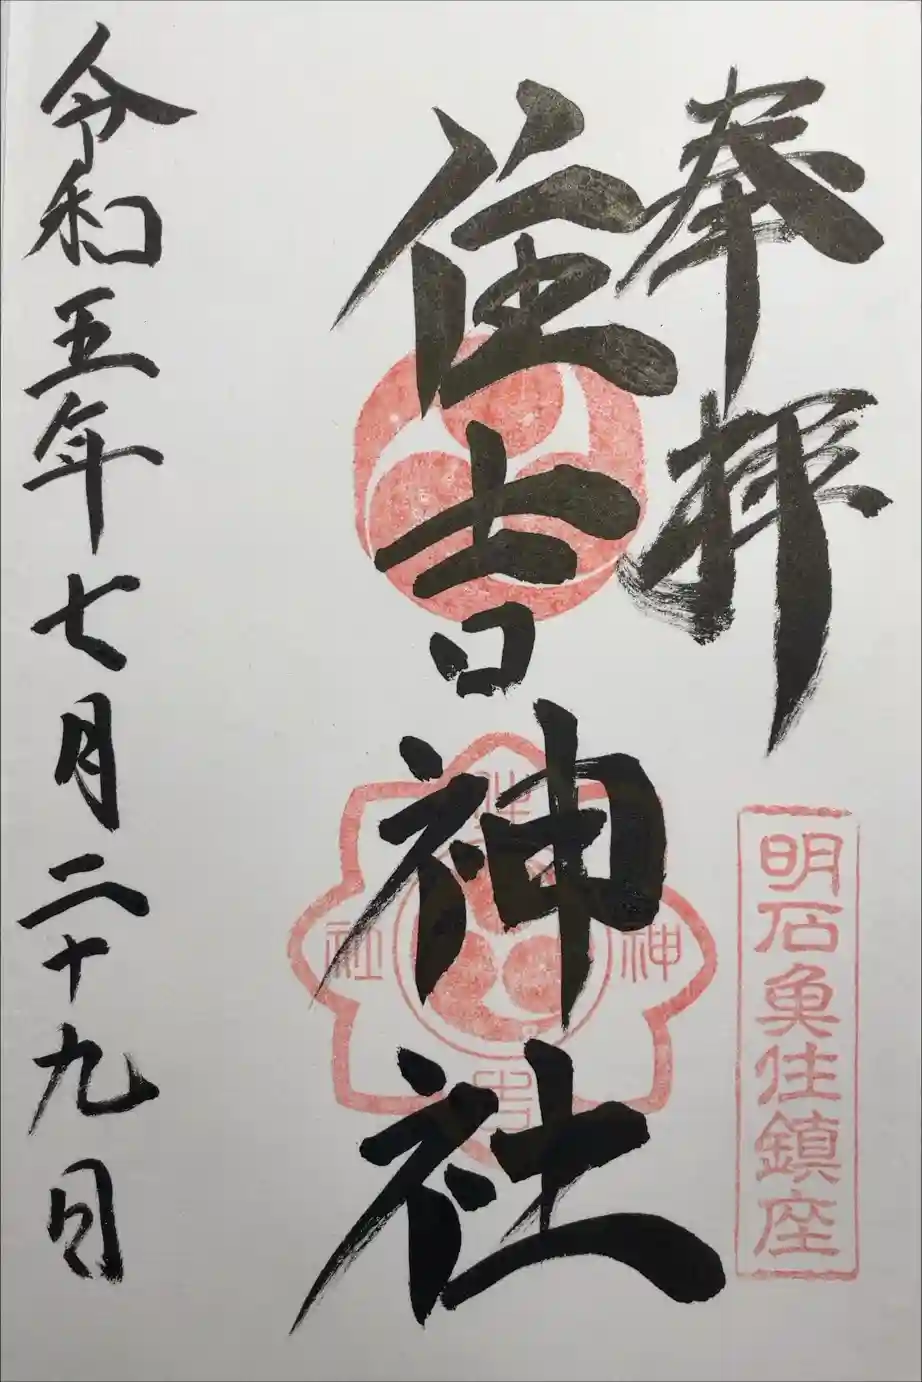 奉拜
明石魚住鎮座
住吉神社
住
神
吉
社
令和五年七月二十九日